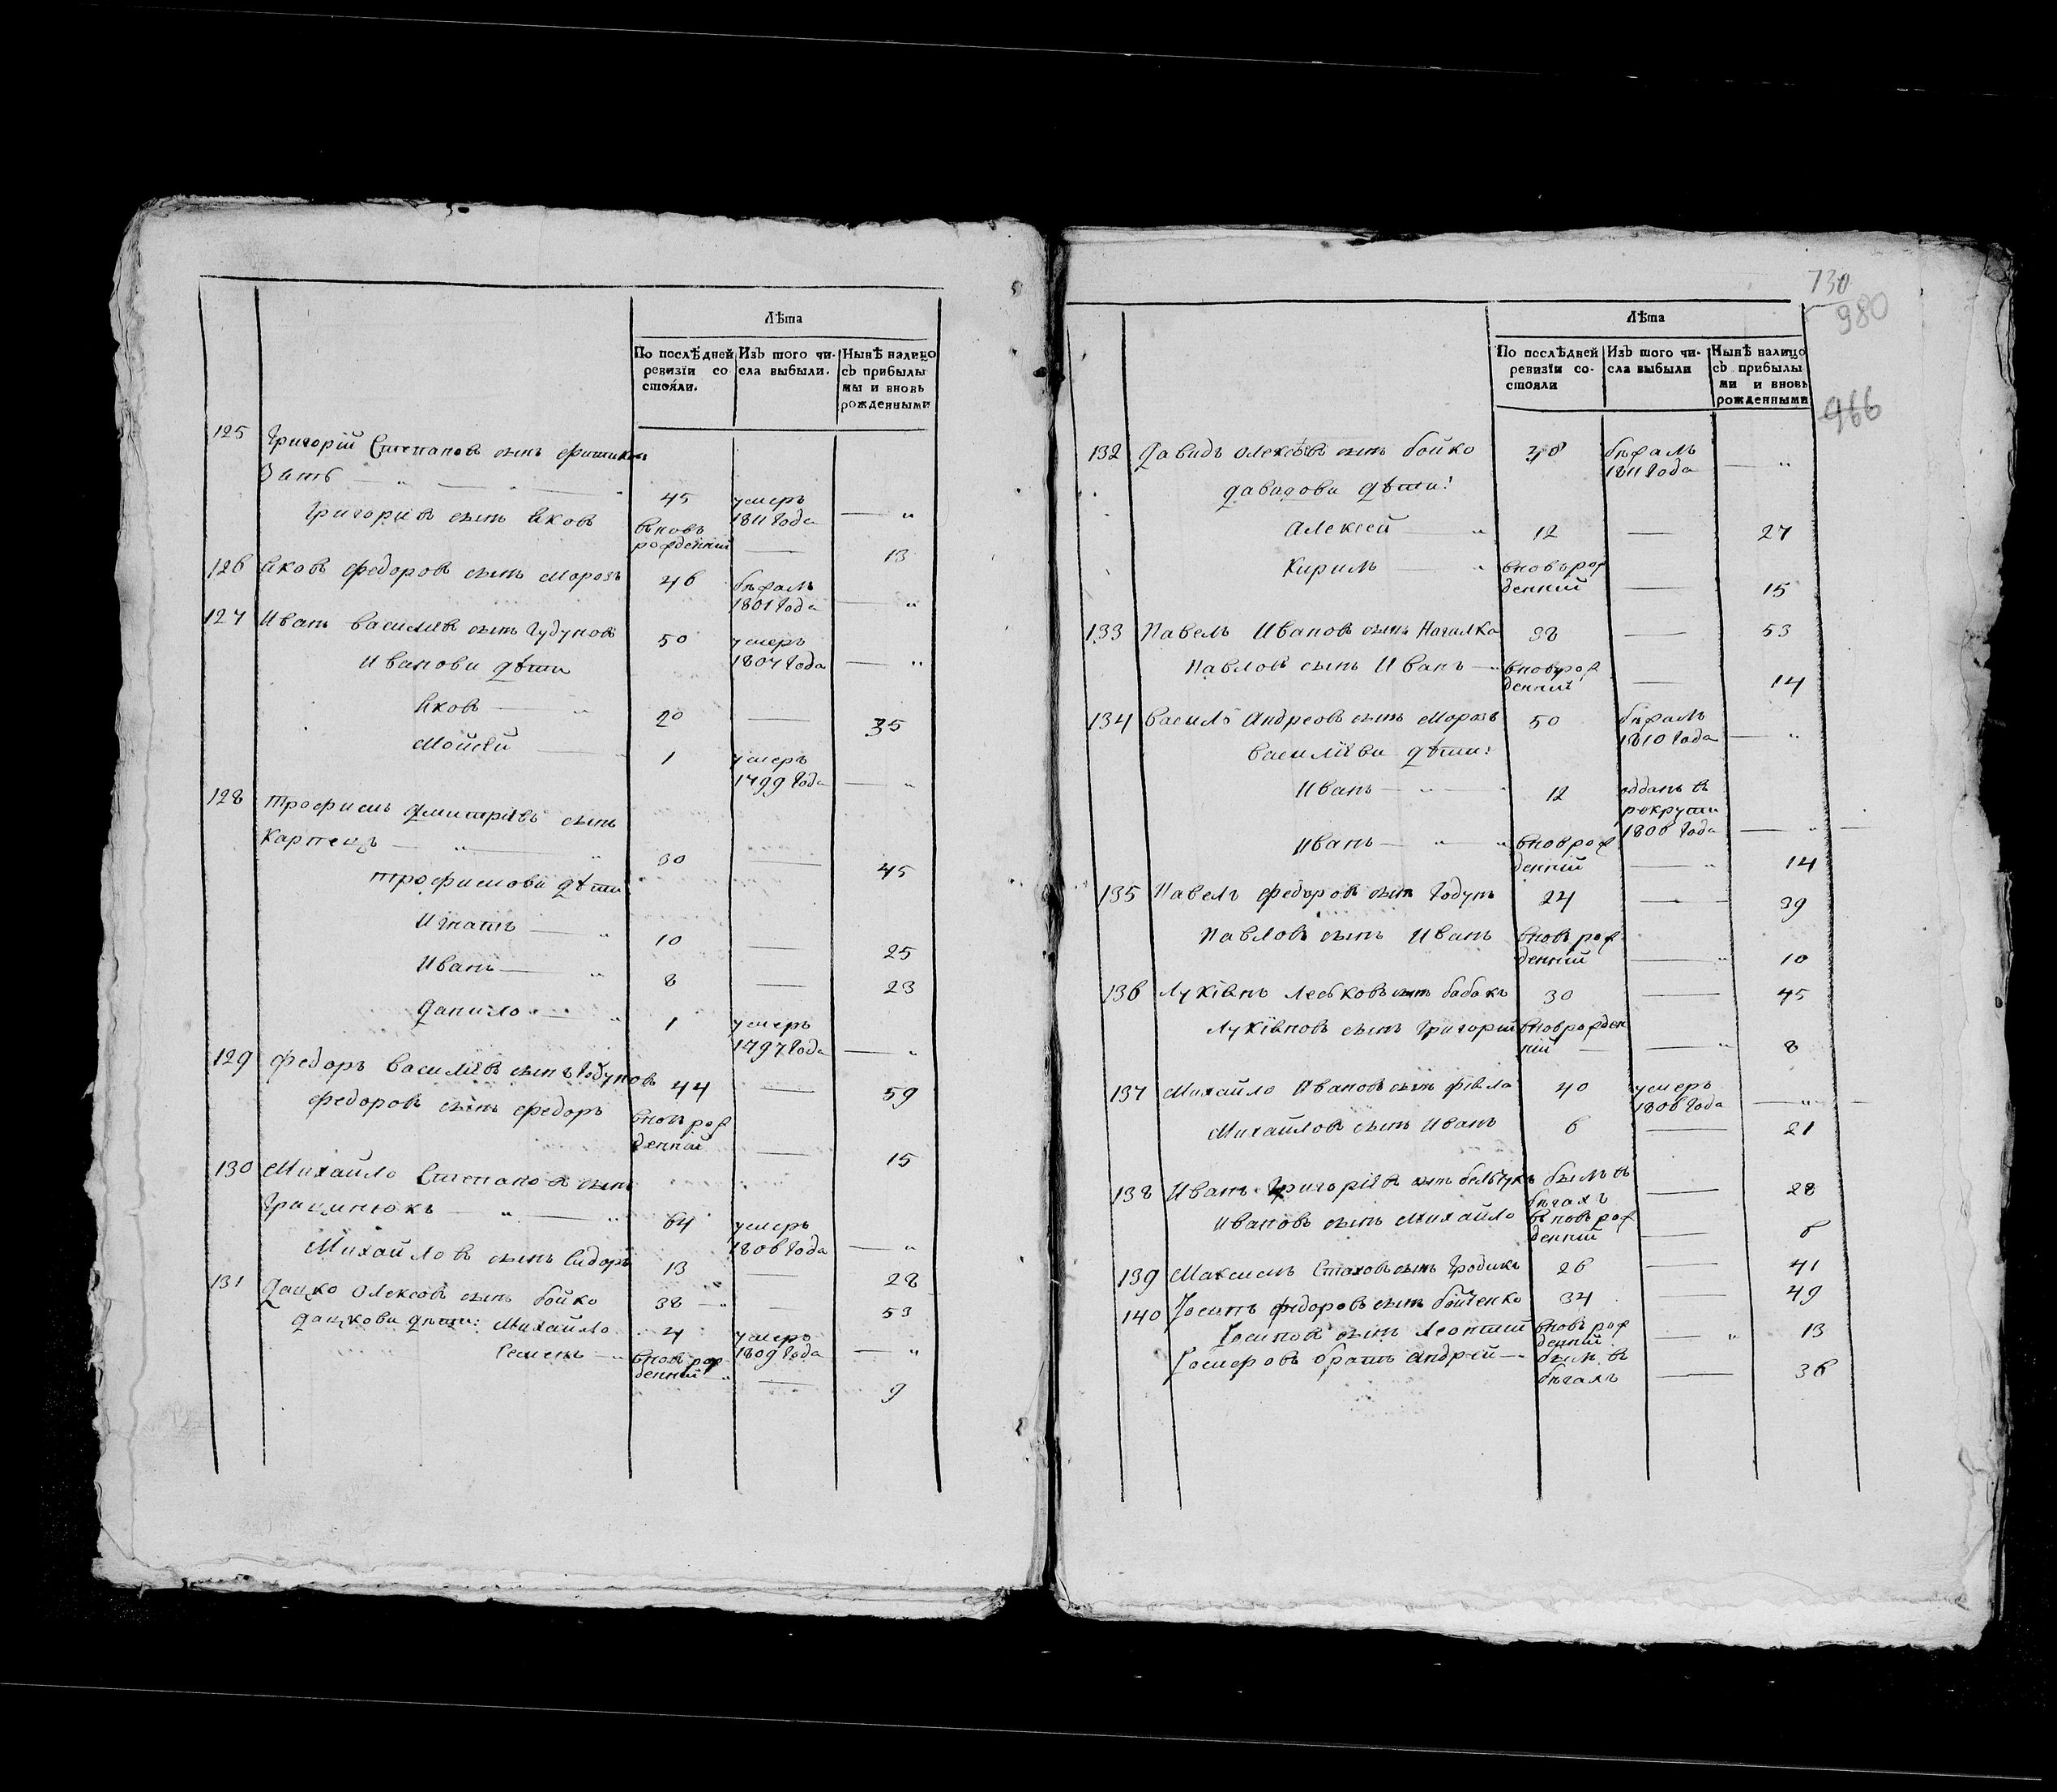 Лѣта
По послѣдней ревизїи со стояли.
Изъ того числа выбыли.
Нынѣ налицо съ прибылы ми и вновь рожденными
125 Григорій Степановъ сынъ
Зать — " — " 45 умеръ 1811 года — "
Григоріевъ сынъ Яковъ вновь рожденній — 13
126 Яковъ Федоровъ сынъ Морозъ 46 бѣжалъ 1801 года — "
127 Иванъ Василіевъ сынъ Гудуновъ 50 умеръ 1807 года — "
Иванови дѣти
Яковъ — " 20 — 35
Мойсѣй — " 1 умеръ 1799 года — "
128 Трофимъ Дмитріевъ сынъ
Карпецъ — " — " 30 — 45
Трофимови дѣти
Игнатъ — " 10 — 25
Иванъ — " 8 — 23
Данило — " 1 умеръ 1797 года — "
129 Федоръ Василіевъ сынъ Годуновъ 44 — 59
Федоровъ сынъ Федоръ вновь рожденній — 15
130 Михайло Степановъ сынъ
Грицинюкъ — " — " 64 умеръ 1806 года — "
Михайловъ сынъ Сидоръ 13 — 28
131 Дацко Олексовъ сынъ Бойко 38 — 53
Дацкови дѣти: Михайло 4 умеръ 1809 года — "
Семенъ — " вновь рожденній — 9
730
980
966
Лѣта
По послѣдней ревизїи состояли
Изъ того числа выбыли
Нынѣ налицо съ прибылы ми и вновь рожденными
132 Давидъ Олексѣевъ сынъ Бойко 38 бѣжалъ 1811 года — "
Давидови дѣти:
Алексей — " 12 — 27
Кирилъ — " вновь рожденній — 15
133 Павелъ Ивановъ сынъ Нагалка 38 — 53
Павловъ сынъ Иванъ — " вновь рожденній — 14
134 Василь Андреовъ сынъ Морозъ 50 бѣжалъ 1810 года — "
Василіеви дѣти:
Иванъ — " — " 12 отданъ въ рокрути 1806 года — " —
Иванъ — " — " вновь рожденній — " 14
135 Павелъ Федоровъ сынъ Годунъ 24 — 39
Павловъ сынъ Иванъ вновь рожденній — " 10
136 Лукіянъ Леськовъ сынъ Бабакъ 30 — 45
Лукіяновъ сынъ Григорій вновь рожденній — — " 8
137 Михайло Ивановъ сынъ 40 умеръ 1806 года — " —
Михайловъ сынъ Иванъ 6 — 21
138 Иванъ Григоріевъ сынъ былъ въ бѣгахъ — 28
Ивановъ сынъ Михайло вновь рожденній — 6
139 Максимъ Стаховъ сынъ Гродика 26 — 41
140 Іосипъ Федоровъ сынъ Бойченко 34 — 49
Іосиповъ сынъ Леонтий вновь рожденній — " 13
Іосифовъ братъ Андрей — былъ въ бѣгахъ — 36